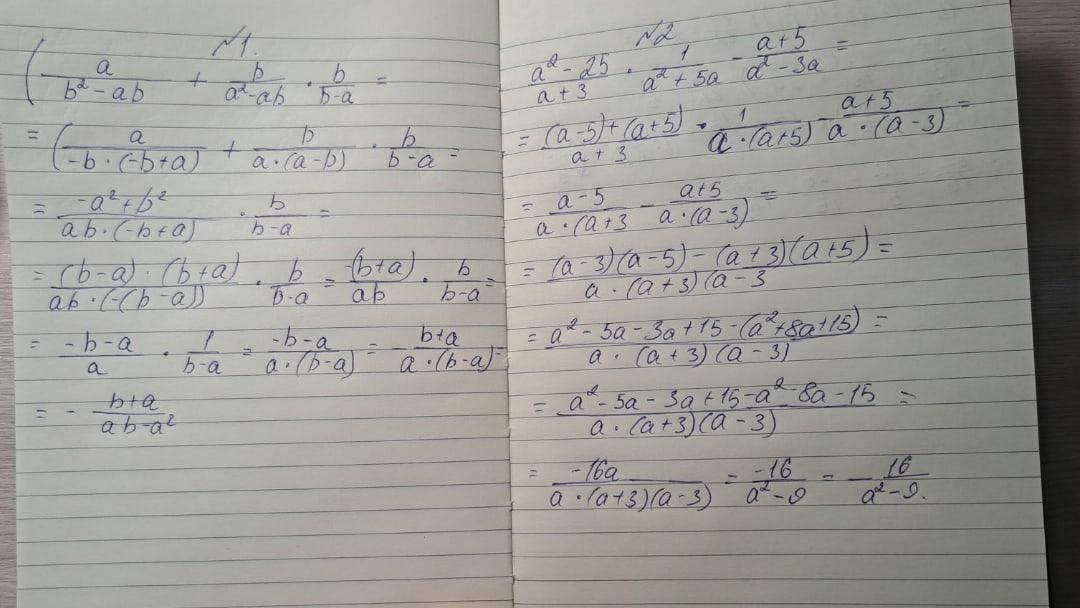 №1.
( a/(b²-ab) + b/(a²-ab) · b/(b-a) =
= ( a/(-b·(-b+a)) + b/(a·(a-b)) · b/(b-a) =
= (-a²+b²)/(ab·(-b+a)) · b/(b-a) =
= ((b-a)·(b+a))/(ab·(-(b-a))) · b/(b-a) = (-(b+a))/(ab) · b/(b-a) =
= (-b-a)/a · 1/(b-a) = (-b-a)/(a·(b-a)) = - (b+a)/(a·(b-a)) =
= - (b+a)/(ab-a²)
№2
(a²-25)/(a+3) · 1/(a²+5a) - (a+5)/(a²-3a) =
= ((a-5)+(a+5))/(a+3) · 1/(a·(a+5)) - (a+5)/(a·(a-3)) =
= (a-5)/(a·(a+3) - (a+5)/(a·(a-3)) =
= ((a-3)(a-5)-(a+3)(a+5))/(a·(a+3)(a-3) =
= (a²-5a-3a+15-(a²+8a+15))/(a·(a+3)(a-3)) =
= (a²-5a-3a+15-a²-8a-15)/(a·(a+3)(a-3)) =
= (-16a)/(a·(a+3)(a-3)) = (-16)/(a²-9) = - 16/(a²-9).